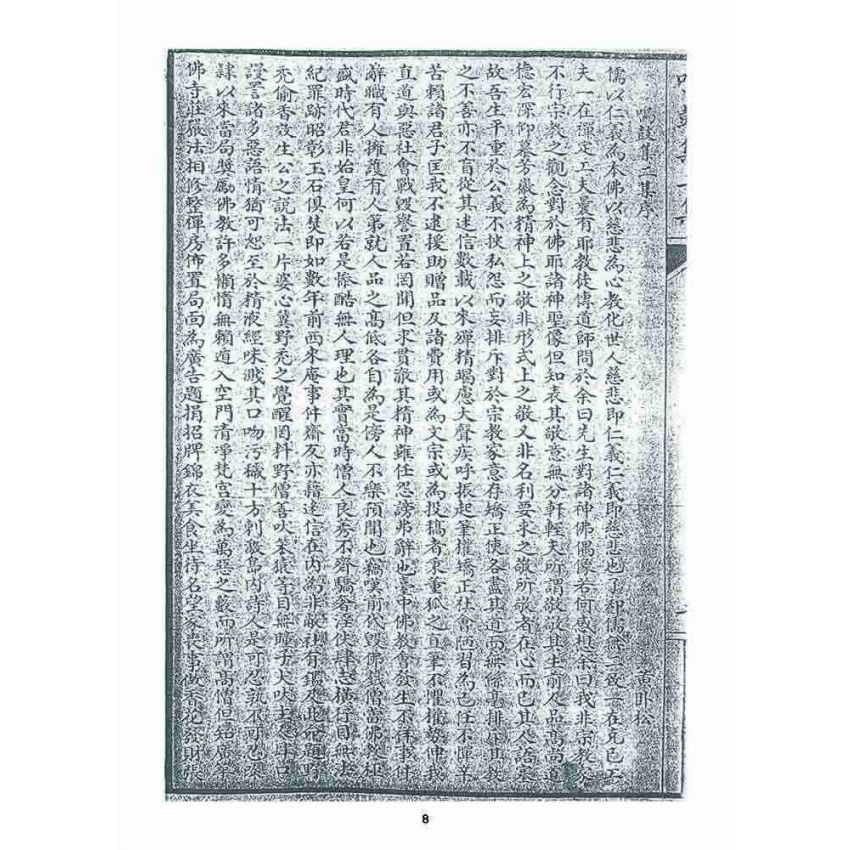 鳴鼓集二集序
黃臥松
儒以仁義為本佛以慈悲為心教化世人慈悲即仁義仁義即慈悲也
夫一在禪定工夫曩有耶教徒傳道師問於余曰先生對諸神佛偶像若何感想余曰我非宗教家
不行宗教之觀念對於佛耶諸神聖像但知表其敬意無分軒輊夫所謂敬敬其生前人品高尚道
德宏深仰慕芳徽為精神上之敬非形式上之敬又非名利要求之敬所敬者在心而已其人語塞
故吾生平重於公義不挾私怨而妄排斥對於宗教家意存矯正使各盡其道而無絲毫排斥其教
之不善亦不盲從其迷信數載以來殫精竭慮大聲疾呼振起筆權矯正社會陋習為己任不憚辛
苦賴諸君子匡我不逮援助贈品及諸費用或為文宗或為投稿者秉董狐之直筆不懼權勢伸我
直道與惡社會戰毀譽置若罔聞但求貫澈其精神雖任怨謗弗辭也臺中佛教會發生不祥事件
辭職有人擁護有人第就人品之高低各自為是傍人不樂預聞也竊嘆前代毀佛戮僧當佛教極
盛時代君非始皇何以若是慘酷無人理也其實當時僧人良莠不齊驕奢淫佚肆志橫行目無法
紀罪跡昭彰玉石俱焚即如數年前西來庵事件齋友亦藉迷信在內為非
禿偷香效生公之說法一片婆心冀野禿之覺醒罔料野僧善吠笨嶽等目無瞳子大吠
設詈諸多惡語情猶可恕至於精液經味濺其口吻污穢十方刺激島內詩人是可忍孰不可忍
隸以來當局獎勵佛教許多懶惰無賴遁入空門清淨梵宮變為萬惡之藪而所謂高僧但知
佛寺莊嚴法相修整禪房佈置局面為廣告題捐招牌錦衣美食坐待名望家喪事做香花發財
8